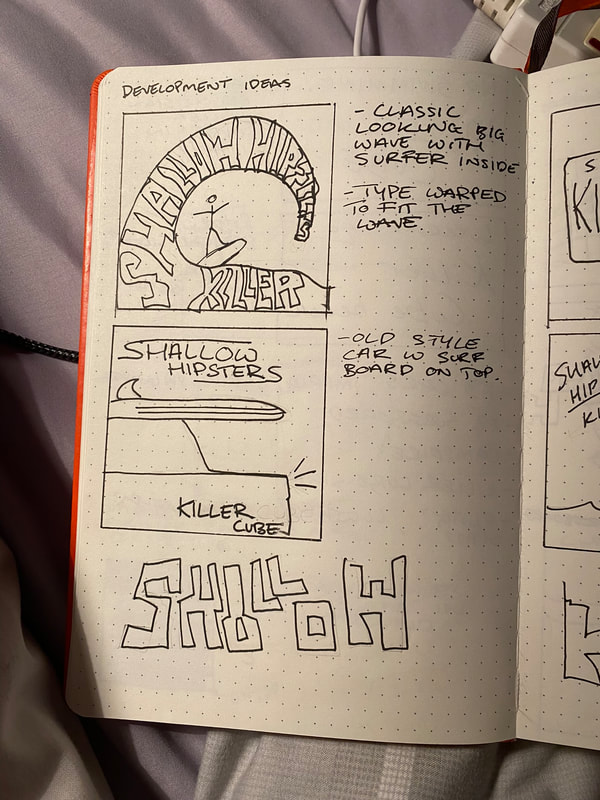 DEVELOPMENT IDEAS
SHALLOW HIPSTERS
KILLER
- CLASSIC
LOOKING BIG
WAVE WITH
SURFER INSIDE
- TYPE WARPED
TO FIT THE
WAVE.
SHALLOW
HIPSTERS
KILLER
CUBE
- OLD STYLE
CAR W SURF
BOARD ON TOP.
SHALLOW
S
KI
SHAL
HIP
KI